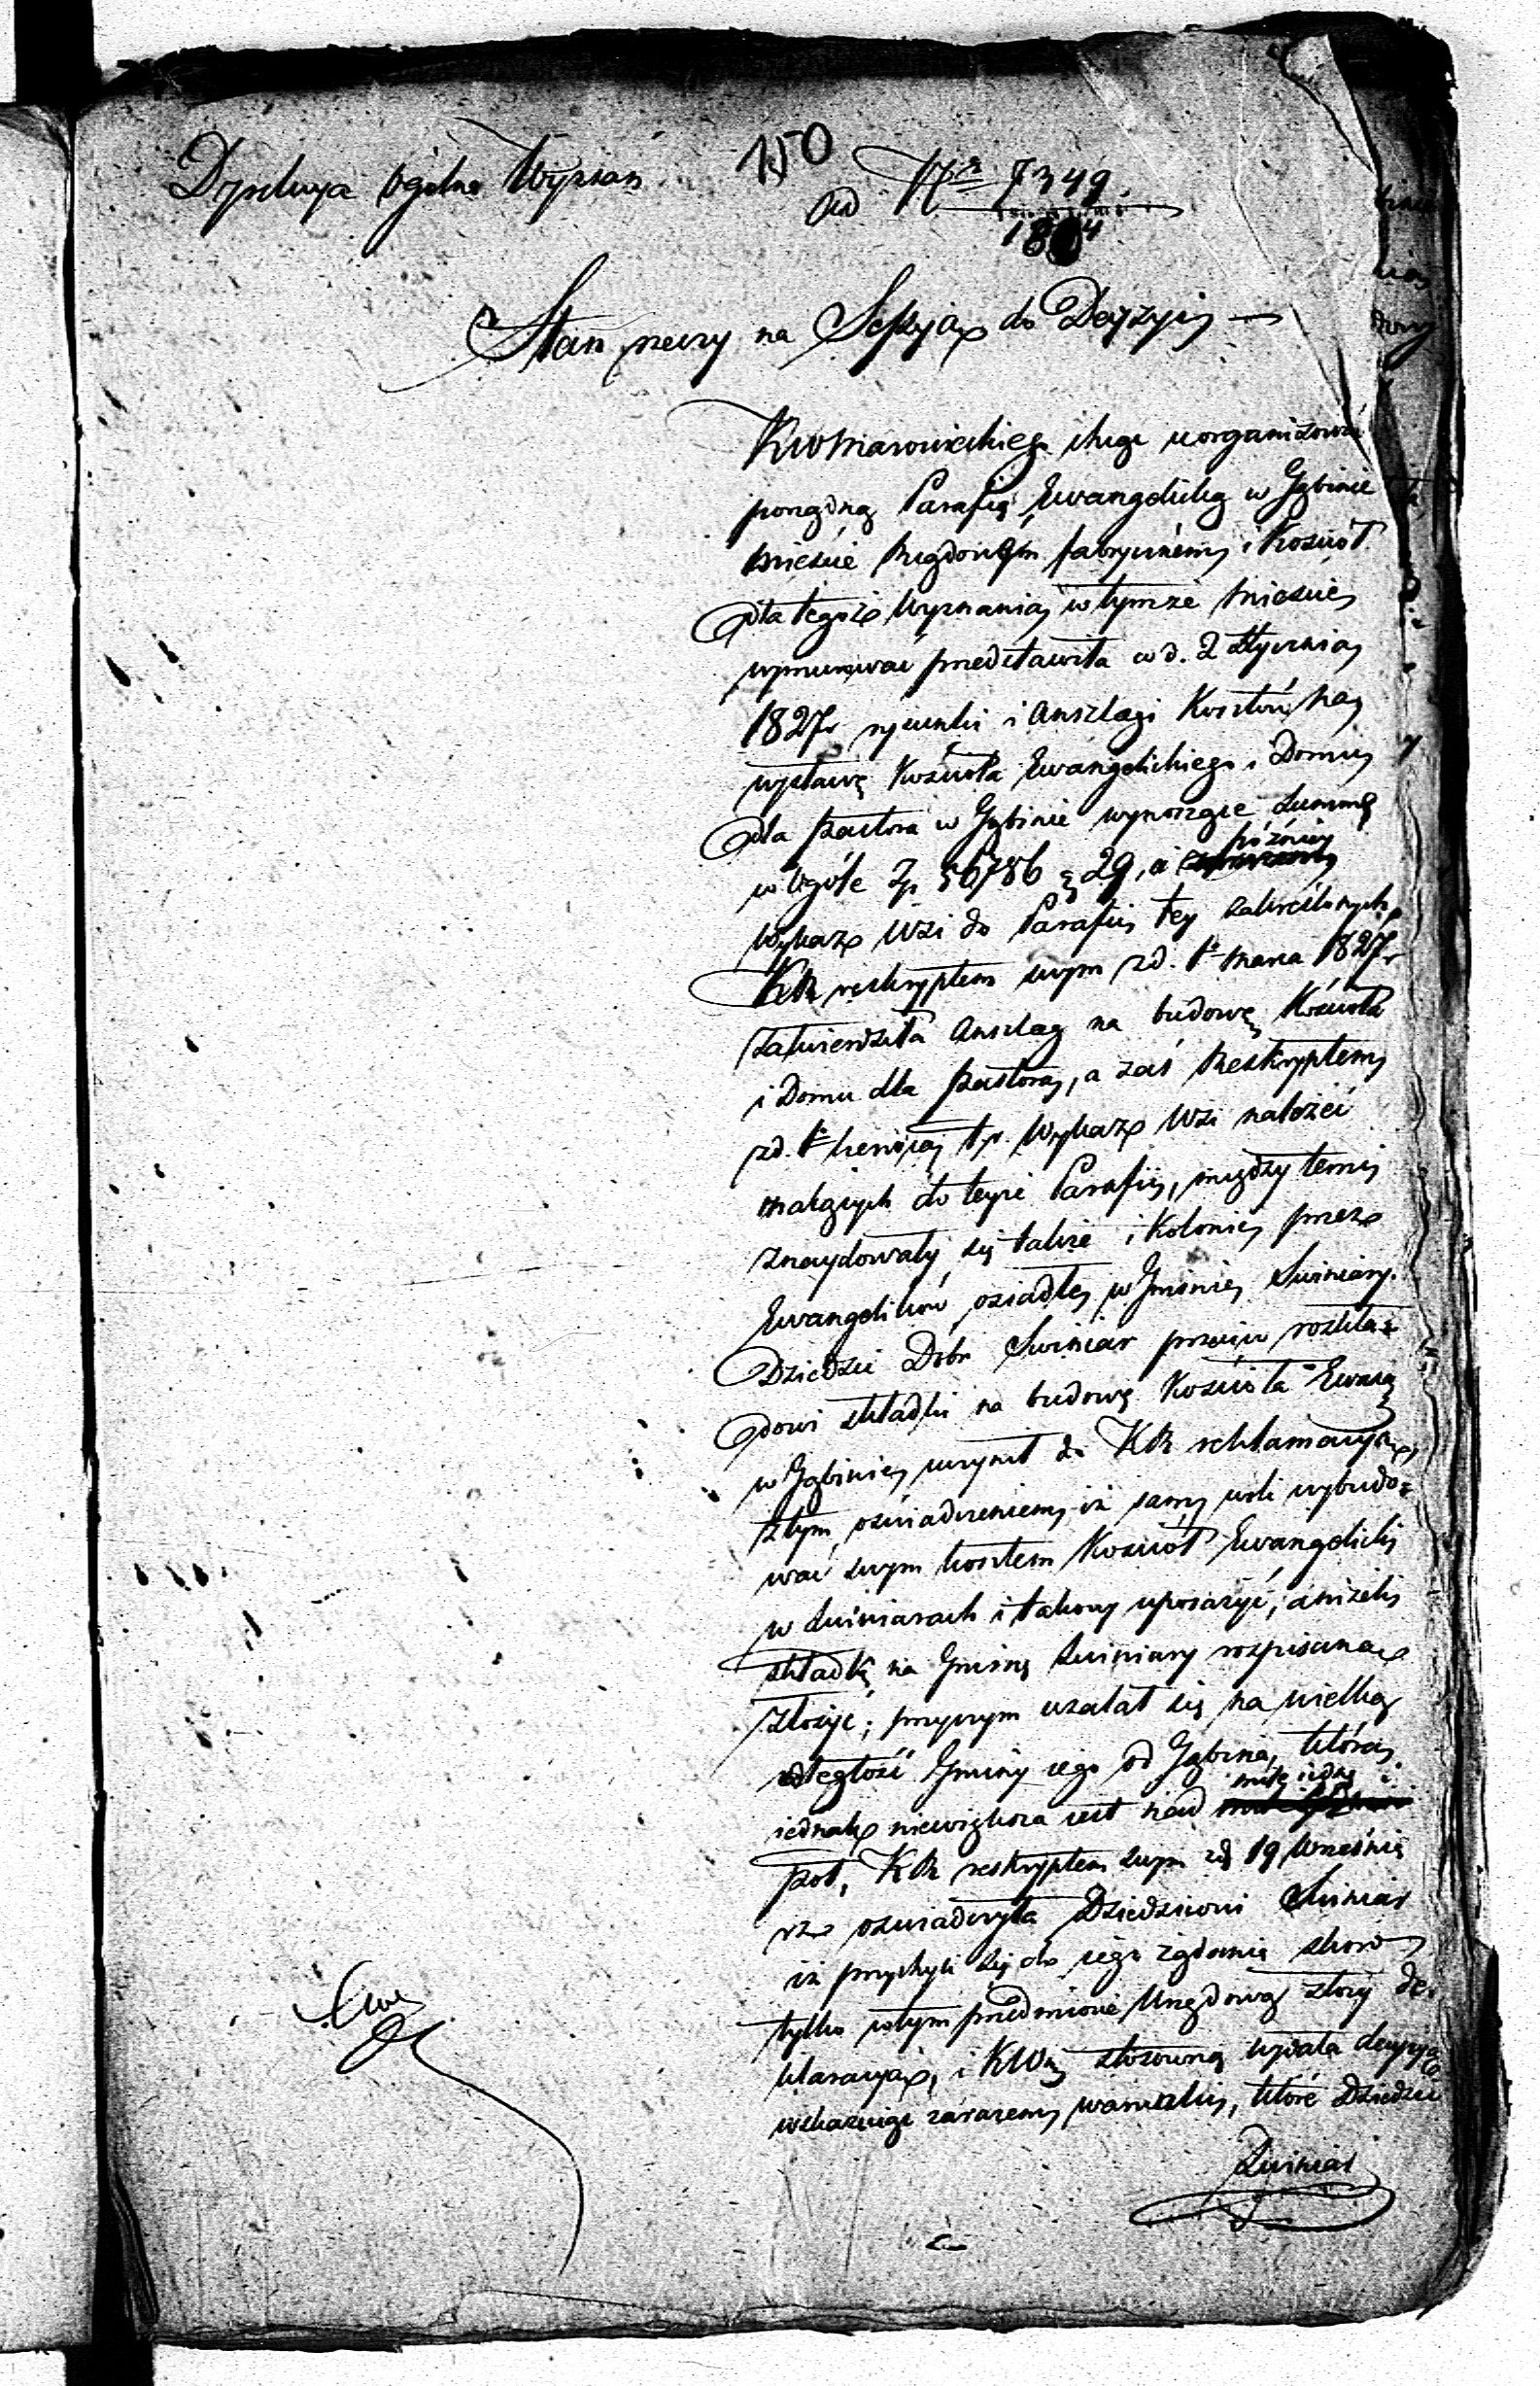 Dyrekcya Ogólna Wyznań
150
ad Nr 7349
18
Stan rzeczy na Sessyą do Decyzyi —
KWMazowieckiego chcąc uorganizować
porządną Parafią Ewangelicką w Gąbinie
mieście Rządowym fabrycznem, i Kościół
dla tegoż Wyznania w tymże mieście
wymurować przedstawiła w d. 2 Stycznia
1827r rysunki i anszlagi Kosztów na
wystawę Kościoła Ewangelickiego i Domu
dla Pastora w Gąbinie wynoszące summę
w ogóle Zp. 56786 g 29, a
później
Wykaz Wsi do Parafii tey zakreślonych.
KR reskryptem swym z d. 1o marca 1827r
zatwierdziła Anszlag na budowę Kościoła
i Domu dla Pastora, a zaś Reskryptem
z d. 1o czerwca t.r. Wykaz Wsi należeć
maiących do teyże Parafii, między temi
znaydowały się także i Kolonie przez
Ewangelików osiadłe w Gminie Swiniary.
Dziedzic Dobr Swiniar przeciw rozkła=
dowi składki na budowę Kościoła Ewang
w Gąbinie uczynił do KR reklamacyą,
z tym oświadczeniem, iż sam woli wybudo=
wać swym kosztem Kościół Ewangelicki
w Swiniarach i takowy uposażyć, aniżeli
składkę na Gminę Swiniary rozpisaną
złożyć; przyczym użalał się na wielką
odległość Gminy iego od Gąbina, która
iednak niewiększa iest nad
milę iedną i
poł, KR reskryptem swym z d 19 Września
r.z. oświadczyła Dziedzicowi Swiniar
iż przychyli się do iego żądania skoro
tylko w tym przedmiocie Urzędową złoży de=
klaracyą, i KW stosowną wydała decyzyą
wskazuiąc zarazem warunki, które Dziedzic
Swiniar